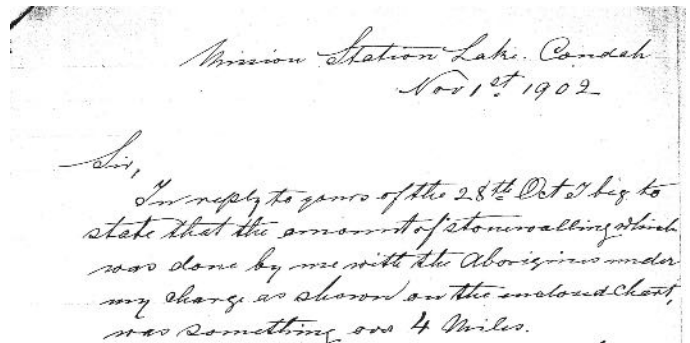 Mission Station Lake. Condah
Nov 1st 1902
Sir,
In reply to yours of the 28th Oct I beg to
state that the amount of stonewalling which
was done by me with the Aborigines under
my charge as shown on the enclosed Chart,
was something over 4 Miles.